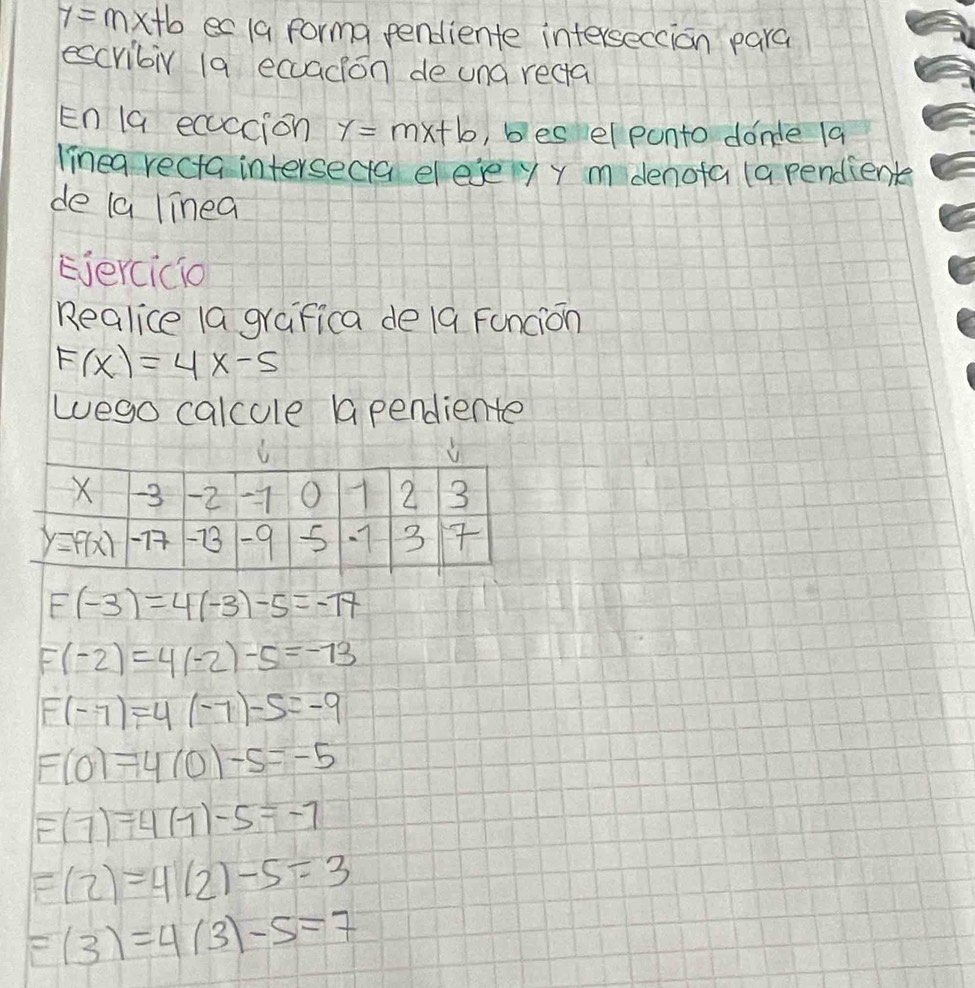 y=mx+b es la forma pendiente intersección para
escribir la ecuación de una recta
En la ecuccion y=mx+b, b es el punto donde la
línea recta intersecta el eje y y m denota la pendiente
de la línea
Ejercicio
Realice la gráfica de la Función
F(x)=4x-5
Luego calcule la pendiente
↓ ↓
x -3 -2 -1 0 1 2 3
y=f(x) -17 -13 -9 -5 -1 3 7
F(-3)=4(-3)-5=-17
F(-2)=4(-2)-5=-13
F(-1)=4(-1)-5=-9
F(0)=4(0)-5=-5
F(1)=4(1)-5=-1
F(2)=4(2)-5=3
F(3)=4(3)-5=7